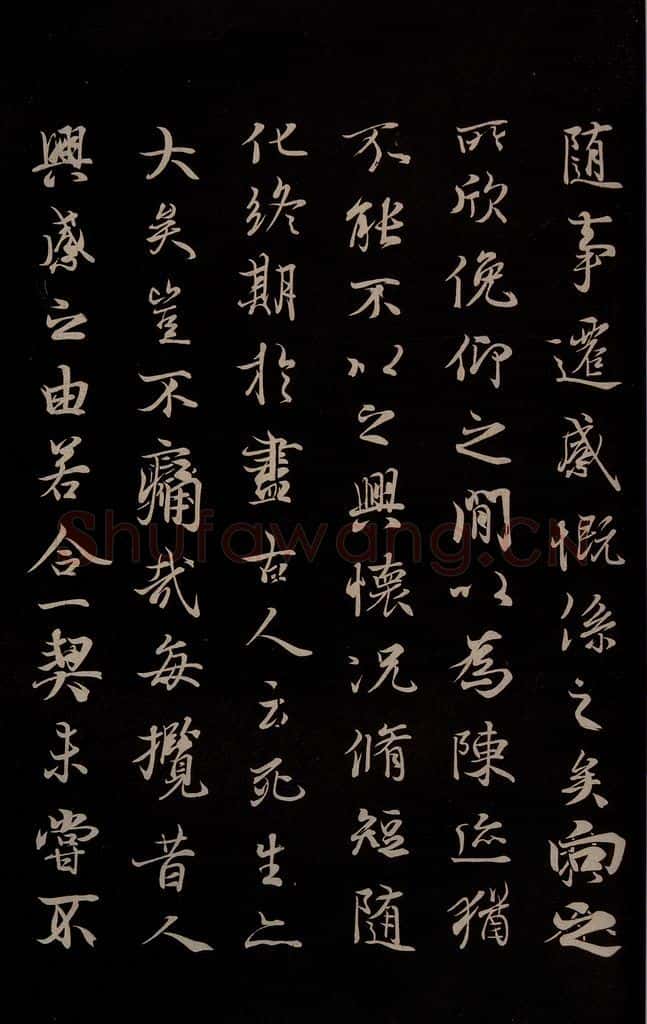 随事遷感慨係之矣向之
所欣俛仰之間以為陳迹猶
不能不以之興懷況脩短随
化終期於盡古人云死生亦
大矣豈不痛哉每攬昔人
興感之由若合一契未嘗不
Shufawang.CN